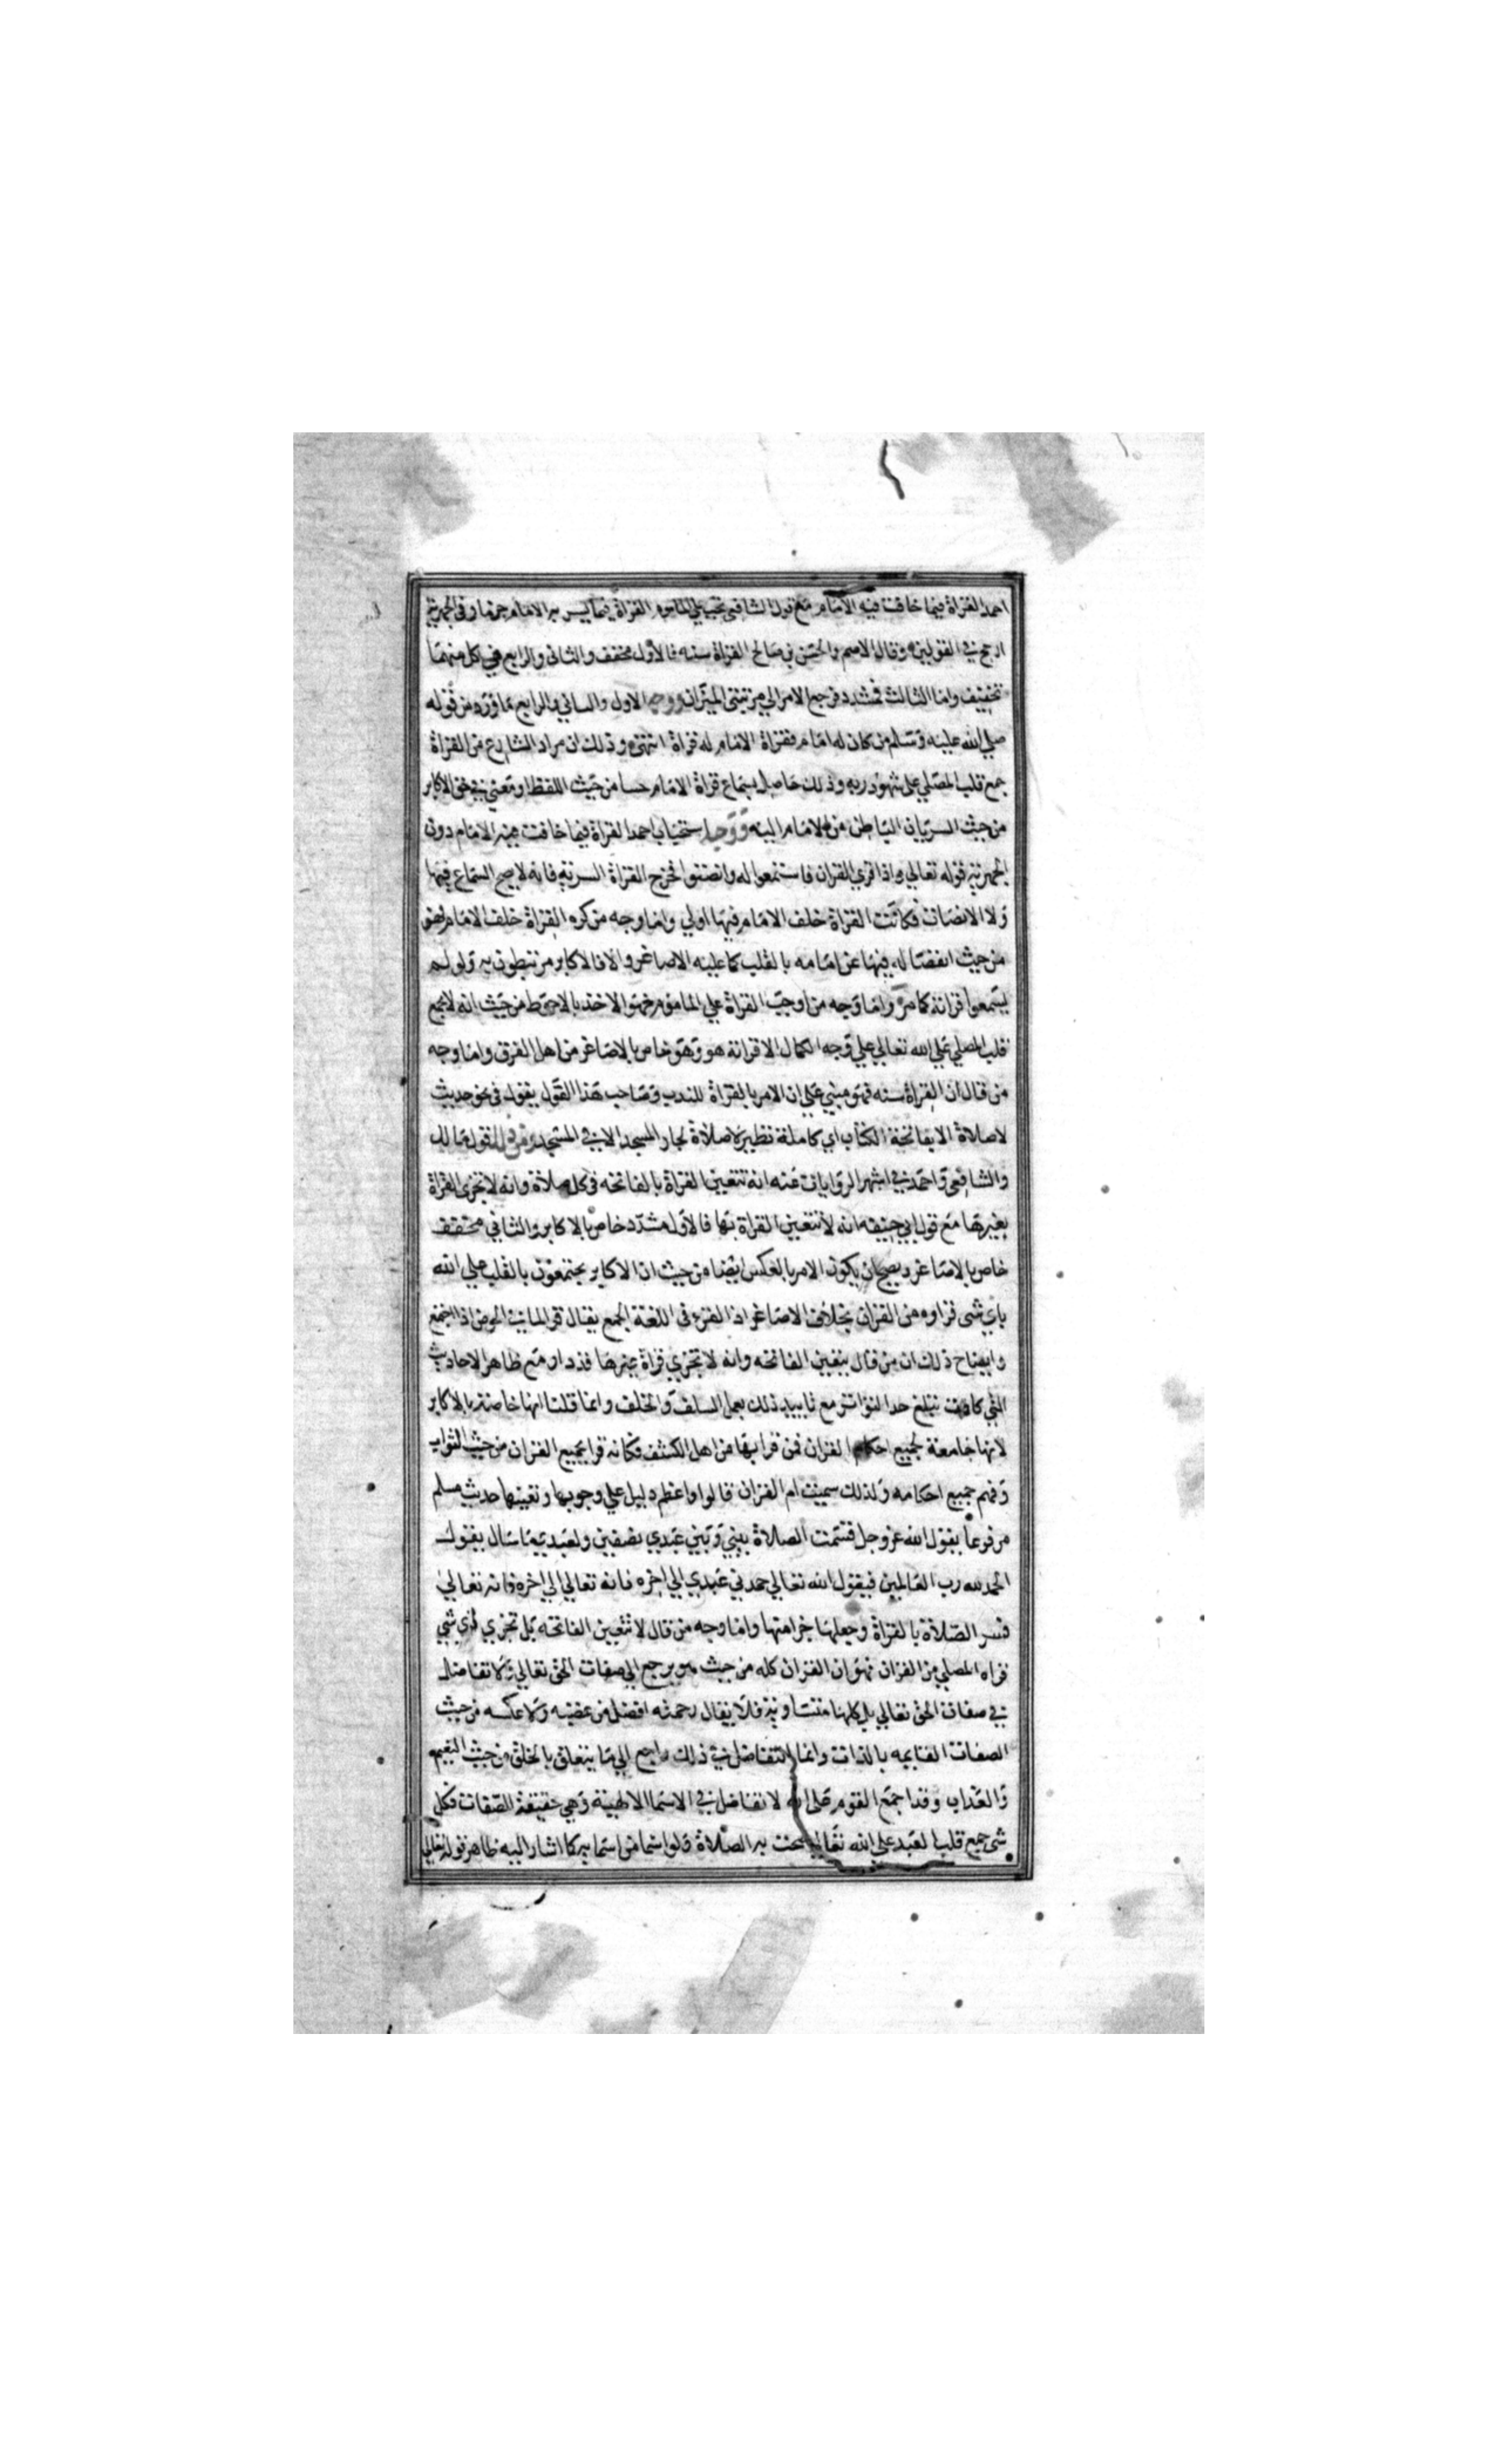 احمد القراة فيما خافت فيه الامام مع قول الشافعي تجب علي الماموم القراة فيما يسر به الامام جزما وفي الجهرية
ارجح في القولين وقال الاصم والحسن بن صالح القراة سنه فالاول مخفف والثاني والرابع في كل منهما
تخفيف واما الثالث فمشدد فرجع الامر الي مرتبتي الميزان ووجه الاول والثاني والرابع ما ورد من قوله
صلي الله عليه وسلم من كان له امام فقراة الامام له قراة انتهى وذلك ان مراد الشارع من القراة
جمع قلب المصلي على شهود ربه وذلك حاصل بسماع قراة الامام حسا من حيث اللفظ او معني في حق الاكابر
من حيث السريان الباطن من الامام اليه ووجه استحباب احمد القراة فيما خافت فيه الامام دون
الجهرية قوله تعالي واذا قري القران فاستمعوا له وانصتوا فخرج القراة السرية فانه لا يصح السماع فيها
ولا الانصات فكانت القراة خلف الامام فيها اولي واما وجه من كره القراة خلف الامام فهو
من حيث انفصاله فيها عن امامه بالقلب كما عليه الاصاغر والا فالاكابر مرتبطون به ولو لم
يسمعوا قرانه كما مر واما وجه من اوجب القراة علي الماموم فهو الاخذ بالاحوط من حيث انه لا يجمع
قلب المصلي علي الله تعالي علي وجه الكمال الا قرانه هو وهو خاص بالاصاغر من اهل الفرق واما وجه
من قال ان القراة سنه فهو مبني علي ان الامر بالقراة للندب وصاحب هذا القول يقول في نحو حديث
لا صلاة الا بفاتحة الكتاب اي كاملة نظير لا صلاة لجار المسجد الا في المسجد ومن ذلك قول مالك
والشافعي واحمد في اشهر الروايات عنه انه تتعين القراة بالفاتحه في كل صلاة وانه لا تجزي القراة
بغيرها مع قول ابي حنيفه انه لا تتعين القراة بها فالاول مشدد خاص بالاكابر والثاني مخفف
خاص بالاصاغر ويصح ان يكون الامر بالعكس ايضا من حيث ان الاكابر يجتمعون بالقلب علي الله
باي شي قراوه من القران بخلاف الاصاغر اذ القرء في اللغة الجمع يقال قرا الماء في الحوض اذا اجتمع
وايضاح ذلك ان من قال بتعين الفاتحه وانه لا تجزي قراة غيرها قد دار مع ظاهر الاحاديث
التي كادت تبلغ حد التواتر مع تاييد ذلك بعمل السلف والخلف وانما قلنا انها خاصة بالاكابر
لانها جامعة لجميع احكام القران فمن قرا بها من اهل الكشف فكانه قرا بجميع القران من حيث الثواب
وفهم جميع احكامه ولذلك سميت ام القران قالوا واعظم دليل علي وجوبها وتعينها حديث مسلم
مرفوعا يقول الله عز وجل قسمت الصلاة بيني وبين عبدي نصفين ولعبدي ما سال يقول
الحمد لله رب العالمين فيقول الله تعالي حمدني عبدي الي اخره فانه تعالي الي اخره فانه تعالي
فسر الصلاة بالقراة وجعلها جزا منها واما وجه من قال لا تتعين الفاتحه بل تجزي اي شي
قراه المصلي من القران فهو ان القران كله من حيث هو يرجع الي صفات الحق تعالي ولا تفاضل
في صفات الحق تعالي بل كلها متساوية فلا يقال رحمته افضل من غضبه ولا عكسه من حيث
الصفات القايمه بالذات وانما التفاضل في ذلك راجع الي ما يتعلق بالخلق من حيث النعيم
والعذاب وقد اجمع القوم علي انه لا تفاضل في الاسما الالهية وهي حقيقة الصفات فكل
شي جمع قلب العبد علي الله تعالي صحت به الصلاة ولو اسما من اسمايه كما اشار اليه ظاهر قوله تعالي